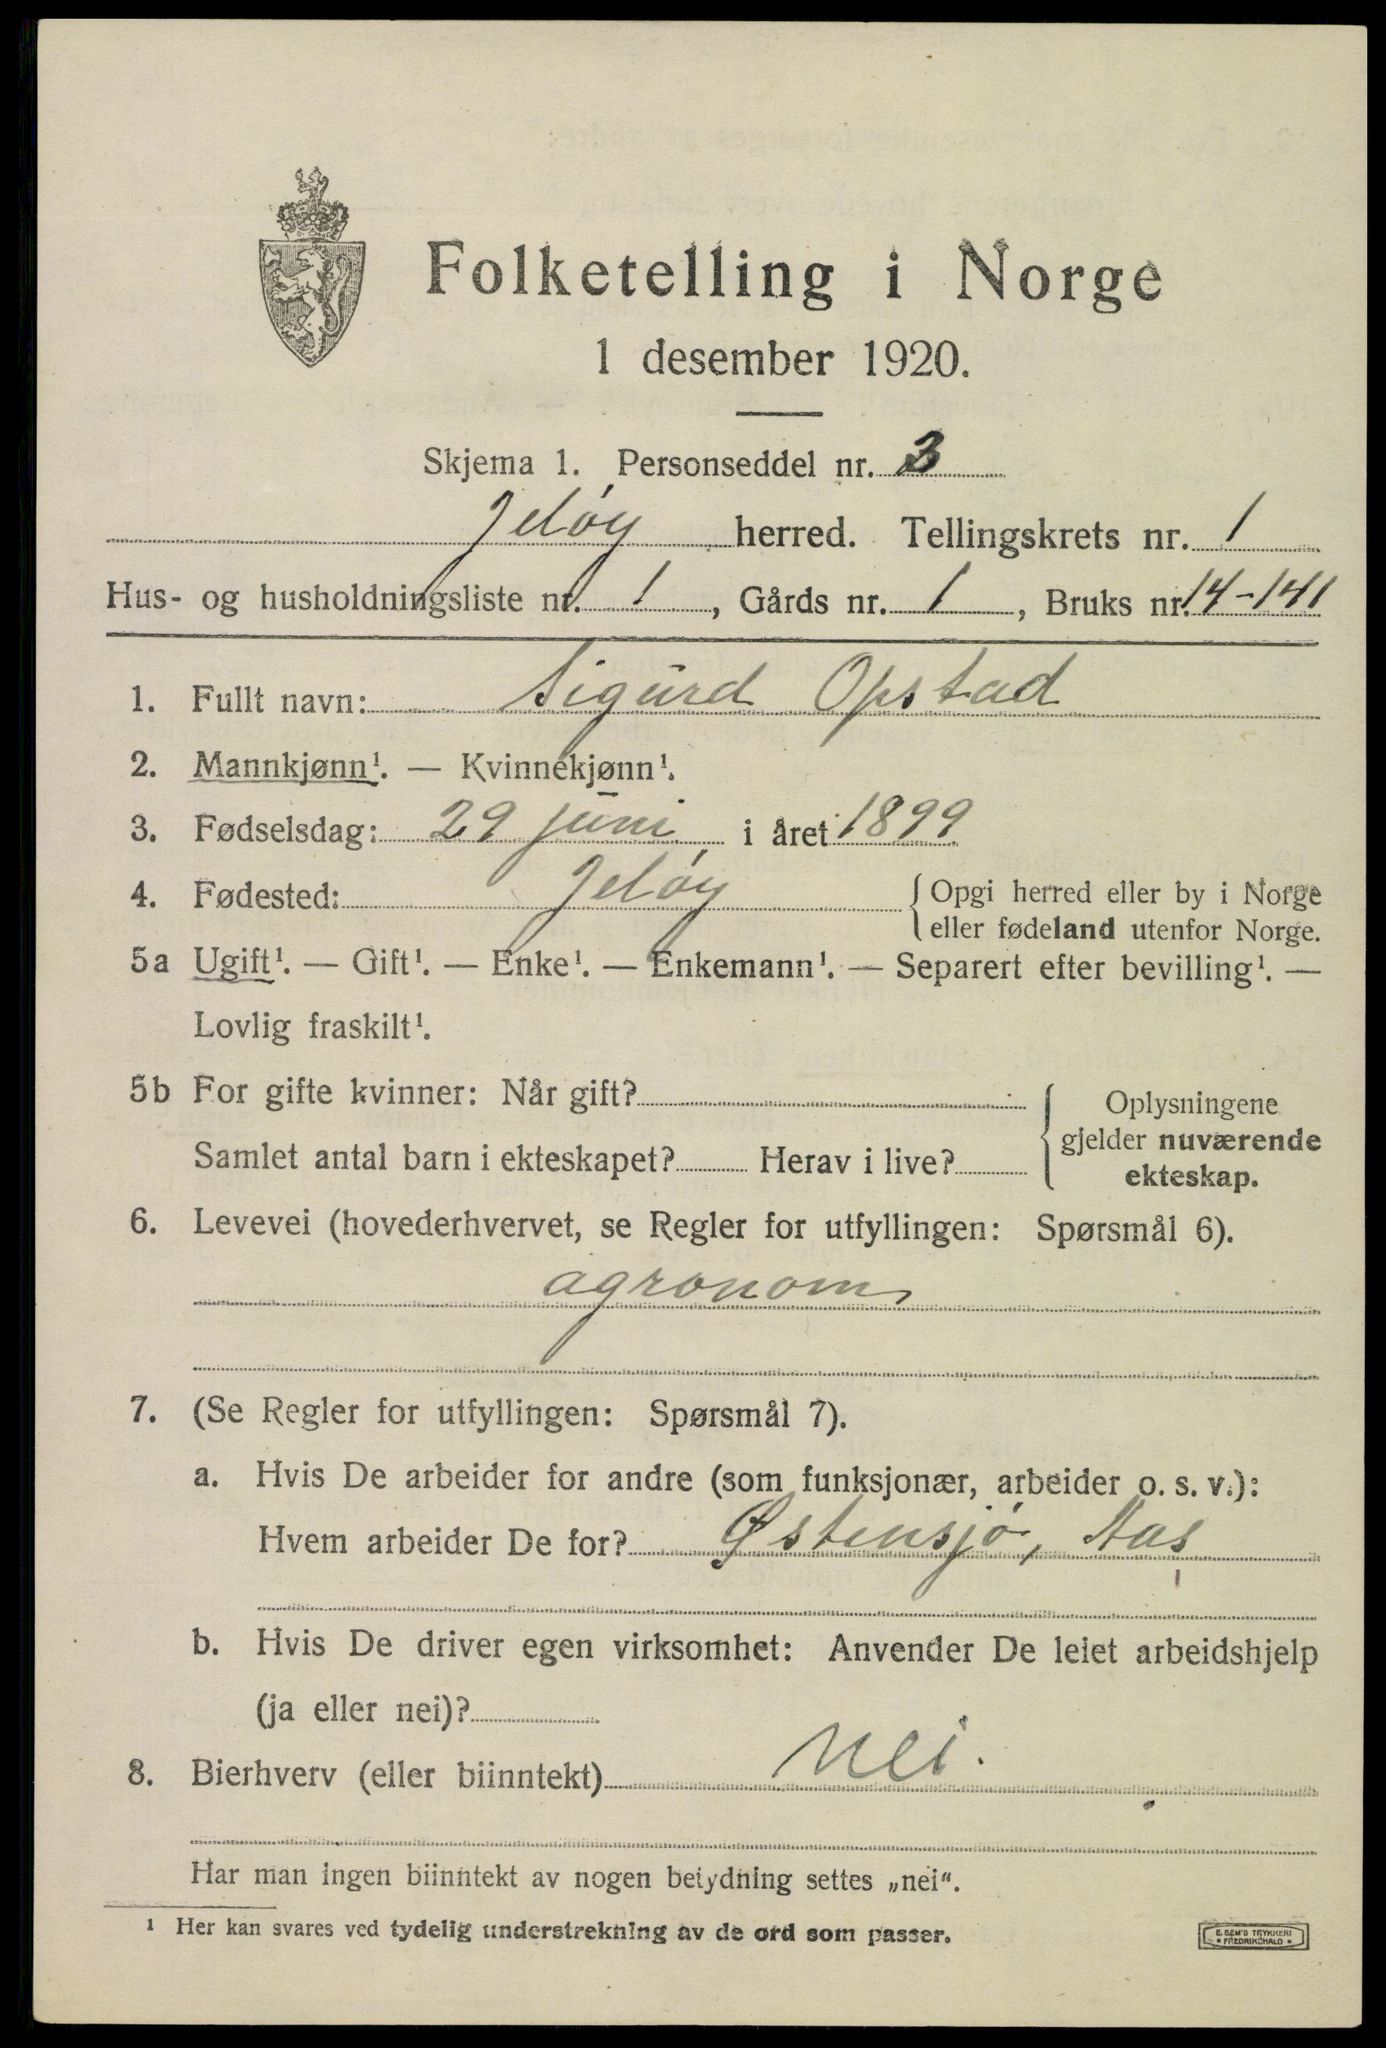 Folketelling i Norge
1 desember 1920.
Skjema 1. Personseddel nr. 3
Jeløy herred. Tellingskrets nr. 1
Hus- og husholdningsliste nr. 1, Gårds nr. 1, Bruks nr. 14-141
1. Fullt navn: Sigurd Opstad
2. Mannkjønn¹. — Kvinnekjønn¹.
3. Fødselsdag: 29 juni i året 1899
4. Fødested: Jeløy { Opgi herred eller by i Norge
eller fødeland utenfor Norge.
5a Ugift¹. — Gift¹. — Enke¹. — Enkemann¹. — Separert efter bevilling¹. —
Lovlig fraskilt¹.
5b For gifte kvinner: Når gift?
Samlet antal barn i ekteskapet? Herav i live?
{ Oplysningene
gjelder nuværende
ekteskap.
6. Levevei (hovederhvervet, se Regler for utfyllingen: Spørsmål 6).
agronom
7. (Se Regler for utfyllingen: Spørsmål 7).
a. Hvis De arbeider for andre (som funksjonær, arbeider o. s. v.):
Hvem arbeider De for? Østensjø, Aas
b. Hvis De driver egen virksomhet: Anvender De leiet arbeidshjelp
(ja eller nei)?
8. Bierhverv (eller biinntekt) Nei.
Har man ingen biinntekt av nogen betydning settes „nei“.
¹ Her kan svares ved tydelig understrekning av de ord som passer.
E. SEM'S TRYKKERI
• FREDRIKSHALD •